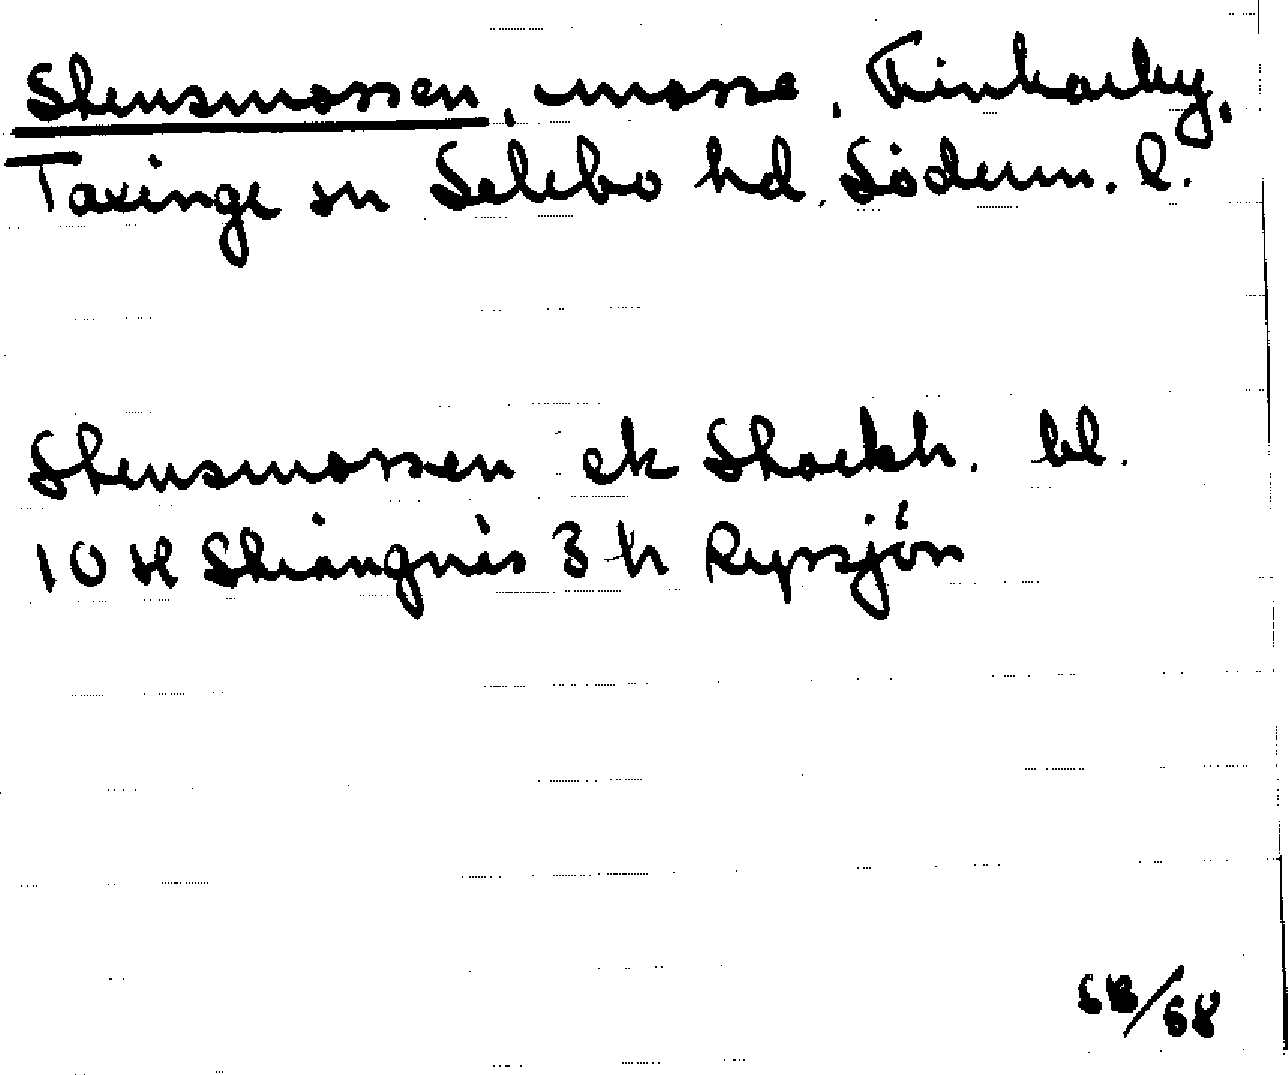 Stensmossen, mosse, Finkarby,
Taxinge sn Selebo hd, Söderm. l.
Stensmossen ek Stockh. bl.
10 H Strängnäs 3 h Ryssjön
SB/68